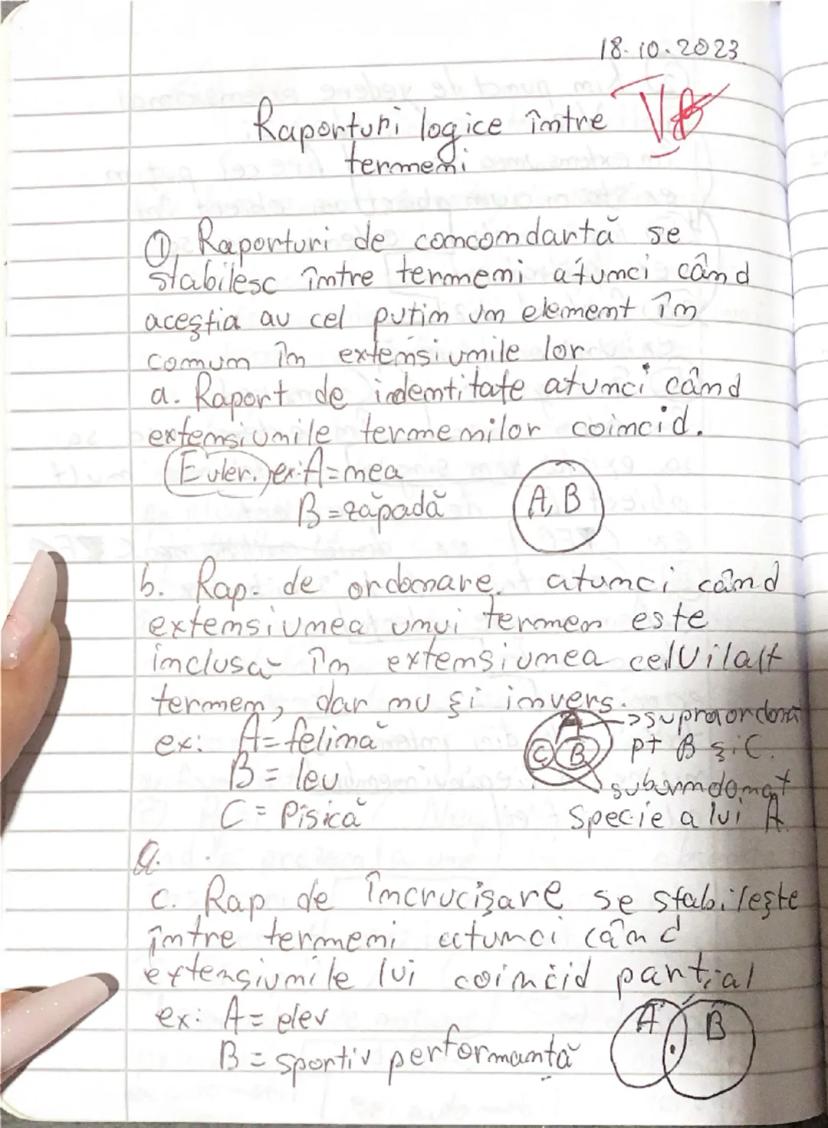 18.10.2023
Raporturi logice între
termeni
① Raporturi de concondartă se
stabilesc între termeni atunci când
aceștia au cel putin un element în
comun în extensiunile lor
a. Raport de indentitate atunci când
extensiunile termenilor coincid.
Euler. ex: A = nea
B = zăpadă
A, B
b. Rap. de ordonare atunci când
extensiunea unui termen este
inclusă în extensiunea celuilalt
termen, dar nu și invers.
A → supraordonat
ex: A = felină
C B pt B și C.
B = leu
subarndonat
C = Pisică
Specie a lui A
a.
c. Rap de încrucișare se stabilește
între termeni atunci când
extensiunile lui coincid parțial
ex: A = elev
A B
B = sportiv performanță